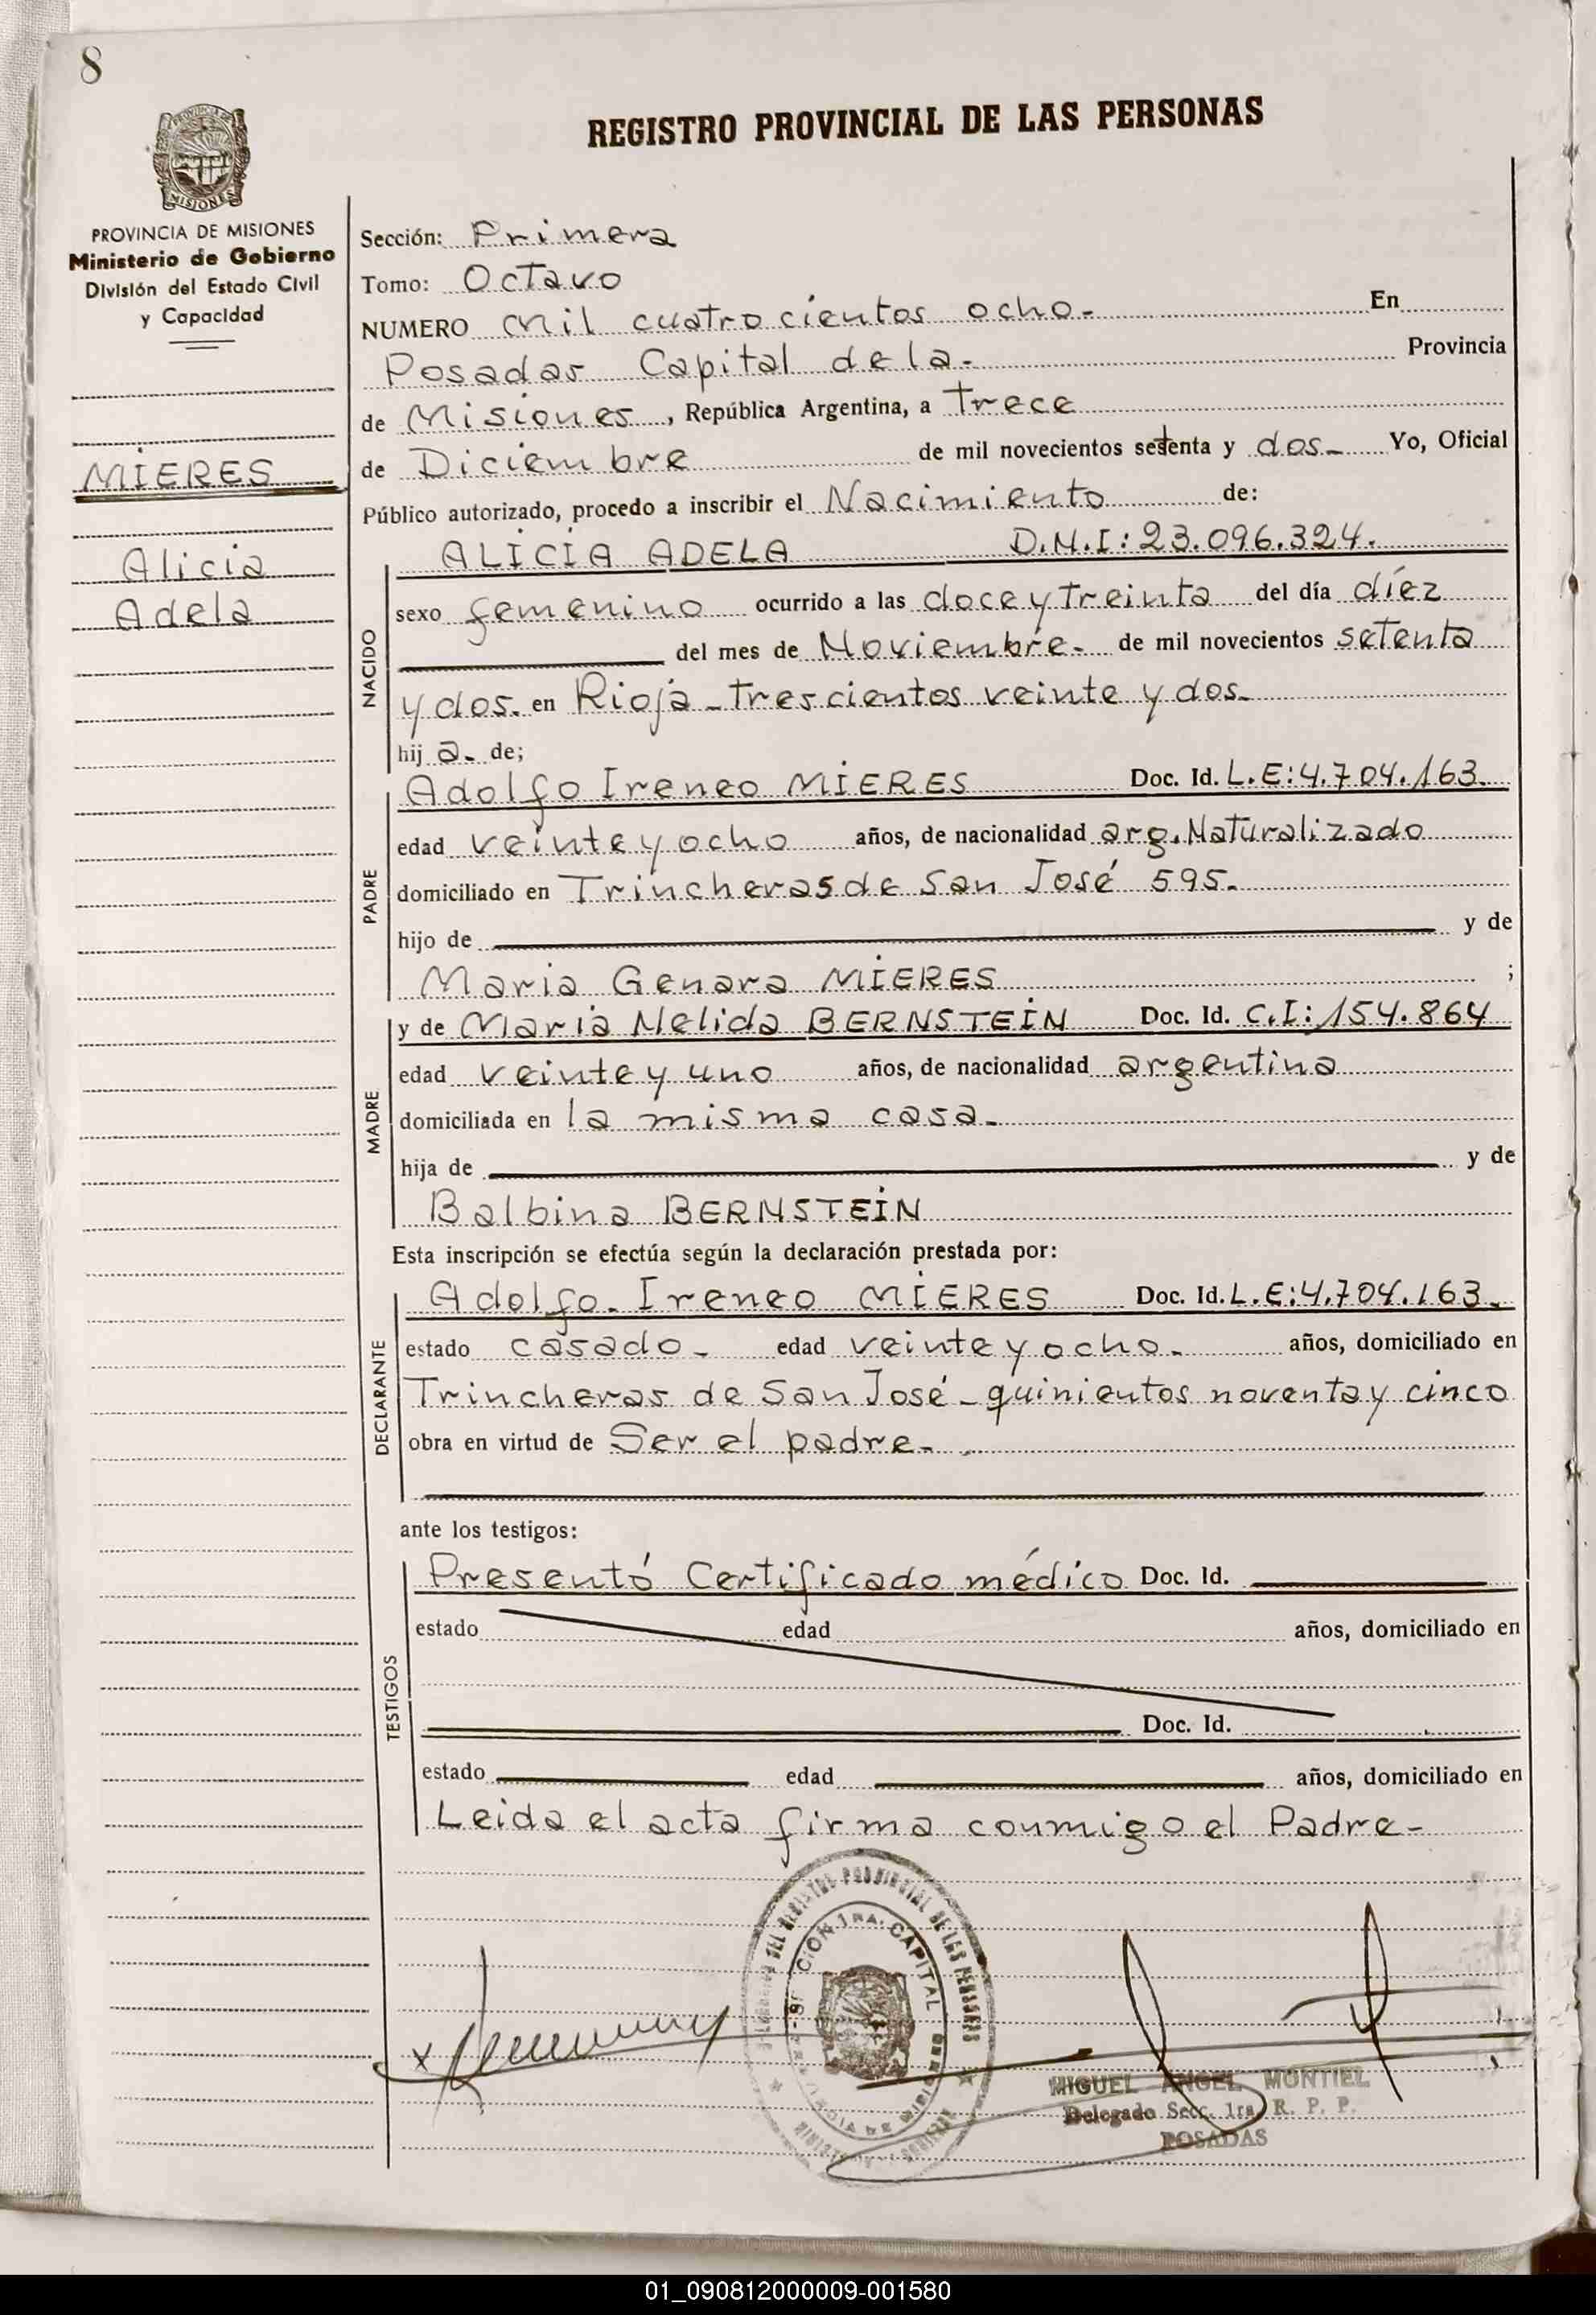 8
REGISTRO PROVINCIAL DE LAS PERSONAS
MISIONES
PROVINCIA DE MISIONES
Ministerio de Gobierno
División del Estado Civil
y Capacidad
MIERES
Alicia
Adela
Sección: Primera
Tomo: Octavo
NUMERO Mil cuatrocientos ocho.- En
Posadas Capital de la.- Provincia
de Misiones, República Argentina, a Trece
de Diciembre de mil novecientos setenta y dos.- Yo, Oficial
Público autorizado, procedo a inscribir el Nacimiento de:
ALICIA ADELA D.N.I: 23.096.324.
NACIDO
sexo femenino ocurrido a las doce y treinta del día díez
del mes de Noviembre.- de mil novecientos setenta
y dos. en Rioja - trescientos veinte y dos.-
hij a. de;
PADRE
Adolfo Ireneo MIERES Doc. Id. L.E: 4.704.163.
edad veinte y ocho años, de nacionalidad arg. Naturalizado
domiciliado en Trincheras de San José 595.-
hijo de y de
Maria Genara MIERES ;
MADRE
y de Maria Nelida BERNSTEIN Doc. Id. C.I: 154.864
edad veinte y uno años, de nacionalidad argentina
domiciliada en la misma casa.-
hija de y de
Balbina BERNSTEIN
Esta inscripción se efectúa según la declaración prestada por:
DECLARANTE
Adolfo. Ireneo MIERES Doc. Id. L.E: 4.704.163.
estado casado.- edad veinte y ocho.- años, domiciliado en
Trincheras de San José - quinientos noventa y cinco
obra en virtud de Ser el padre.-
ante los testigos:
TESTIGOS
Presentó Certificado médico Doc. Id.
estado edad años, domiciliado en
Doc. Id.
estado edad años, domiciliado en
Leida el acta firma conmigo el Padre.-
DEL REGISTRO PROVINCIAL DE LAS PERSONAS
CION 1RA. CAPITAL
MIGUEL ANGEL MONTIEL
Delegado Secc. 1ra. R. P. P.
POSADAS
01_090812000009-001580